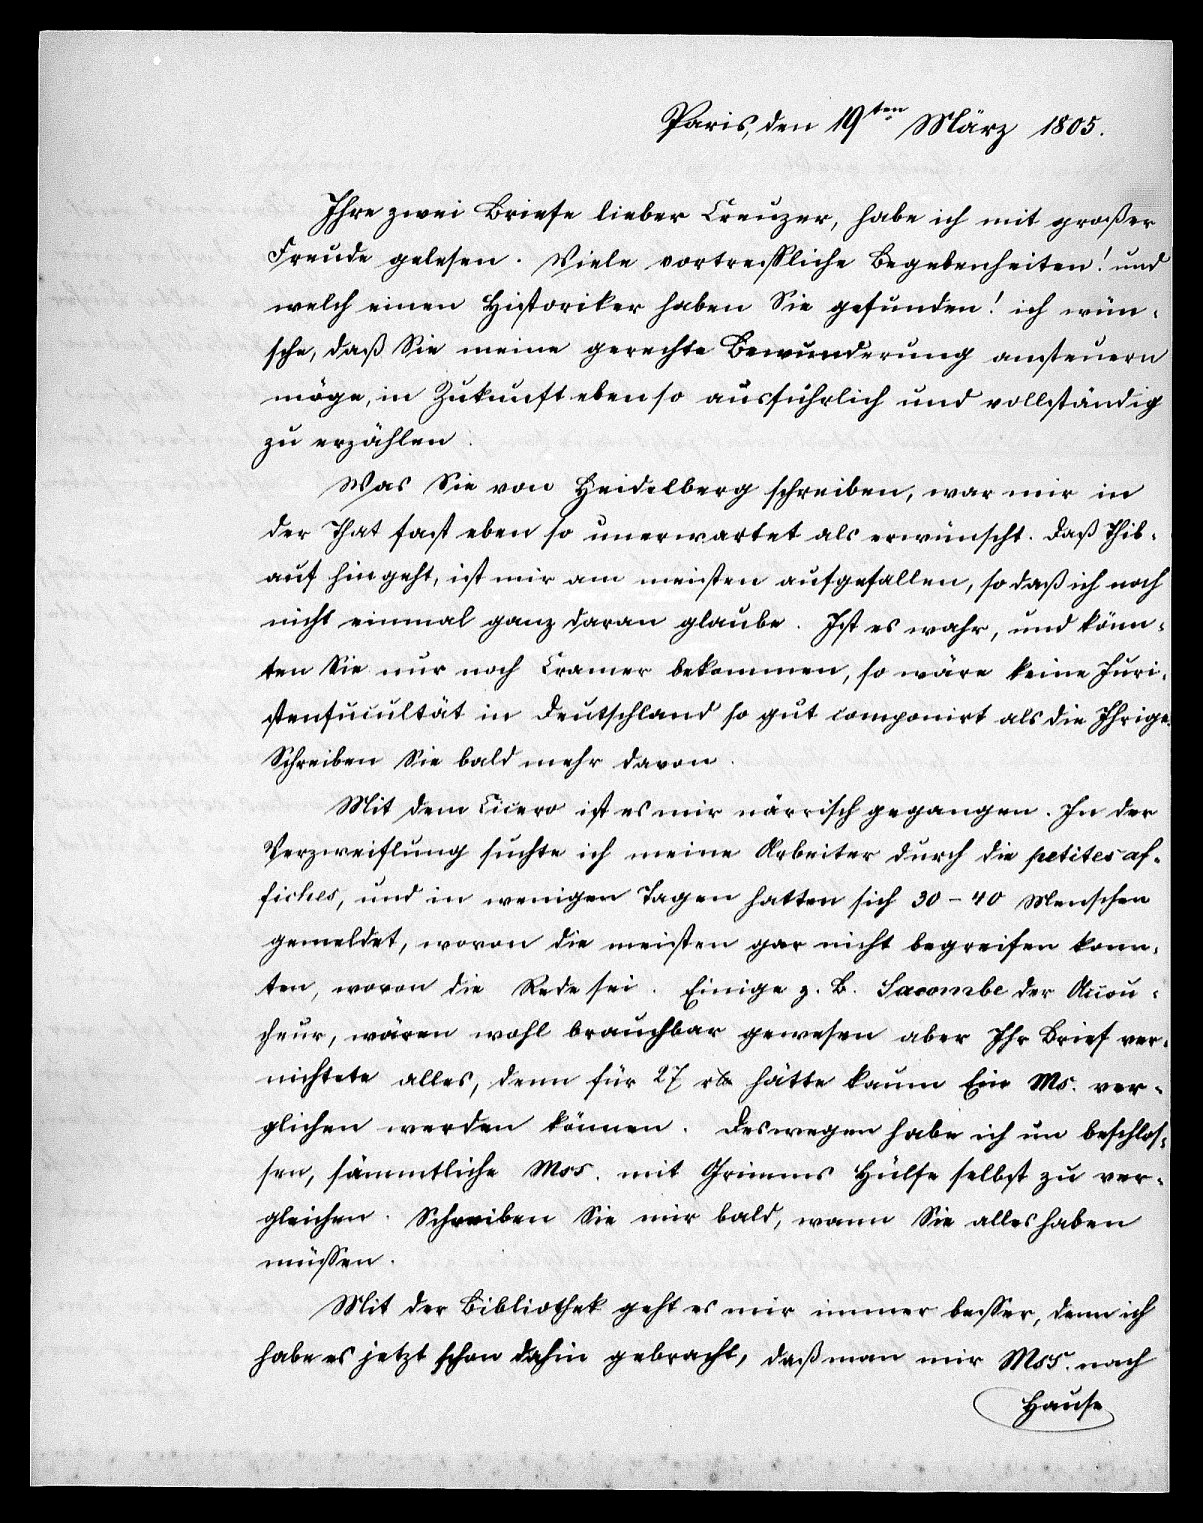 Paris, den 19ten März 1805.
Ihre zwei Briefe lieber Creuzer, habe ich mit großer
Freude gelesen. Viele vortreffliche Begebenheiten! und
welch einen Historiker haben Sie gefunden! ich wün-
sche, daß Sie meine gerechte Bewunderung anfeuern
möge, in Zukunft eben so ausführlich und vollständig
zu erzählen.
Was Sie von Heidelberg schreiben, war mir in
der That fast eben so unerwartet als erwünscht. Daß Thib-
aut hingeht, ist mir am meisten aufgefallen, so daß ich noch
nicht einmal ganz daran glaube. Ist es wahr, und könn-
ten Sie nur noch Cramer bekommen, so wäre keine Juri-
stenfacultät in Deutschland so gut componirt als die Ihrige.
Schreiben Sie bald mehr davon.
Mit dem Cicero ist es mir närrisch gegangen. In der
Verzweiflung suchte ich meine Arbeiter durch die petites af-
fiches, und in wenigen Tagen hatten sich 30 – 40 Menschen
gemeldet, wovon die meisten gar nicht begreifen konn-
ten, wovon die Rede sei. Einige z. B. Sacombe der Accou-
cheur, wären wohl brauchbar gewesen aber Ihr Brief ver-
nichtete alles, denn für 27 rth hätte kaum Ein Ms. ver-
glichen werden können. Deswegen habe ich un beschlos-
sen, sämmtliche Mss. mit Grimms Hülfe selbst zu ver-
gleichen. Schreiben Sie mir bald, wann Sie alles haben
müssen.
Mit der Bibliothek geht es mir immer besser, denn ich
habe es jetzt schon dahin gebracht, daß man mir Mss. nach
Hause